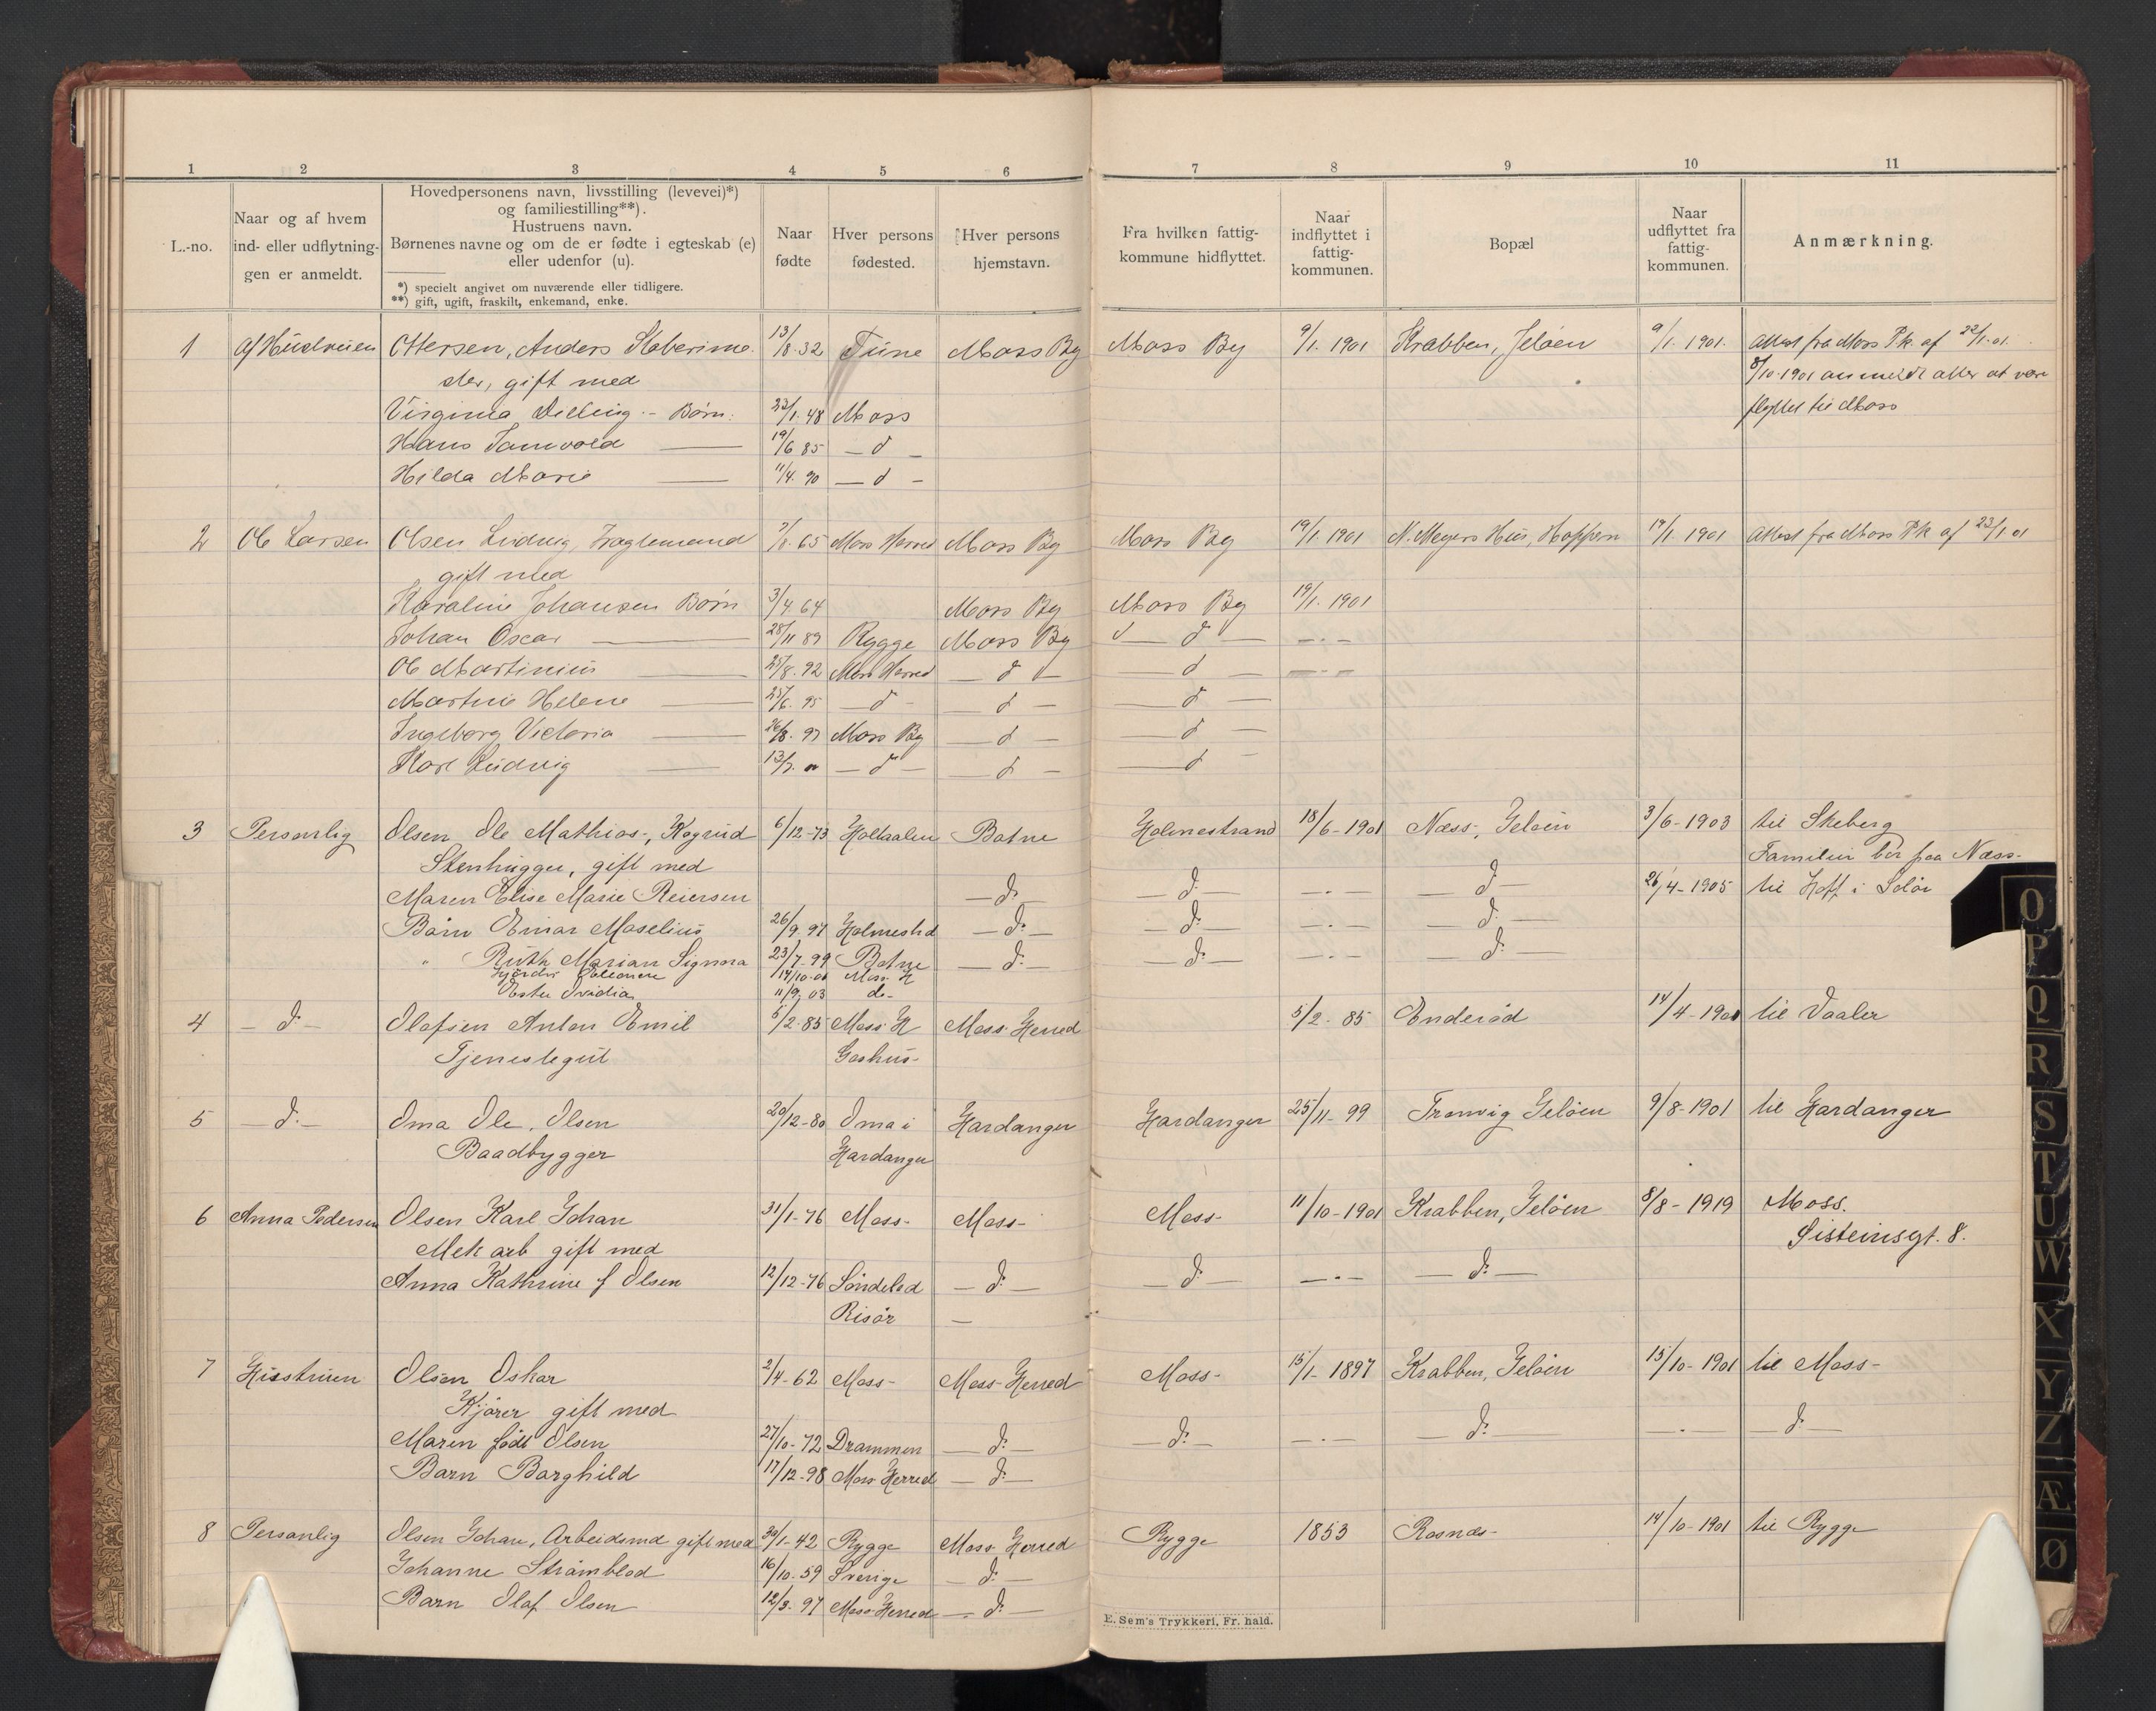 1 2 3 4 5 6 7 8 9 10 11
L.-no.
Naar og af hvem
ind- eller udflytning-
gen er anmeldt.
Hovedpersonens navn, livsstilling (levevei)*)
og familiestilling**).
Hustruens navn.
Børnenes navne og om de er fødte i egteskab (e)
eller udenfor (u).
*) specielt angivet om nuværende eller tidligere.
**) gift, ugift, fraskilt, enkemand, enke.
Naar
fødte
Hver persons
fødested.
Hver persons
hjemstavn.
Fra hvilken fattig-
kommune hidflyttet.
Naar
indflyttet i
fattig-
kommunen.
Bopæl
Naar
udflyttet fra
fattig-
kommunen.
Anmærkning.
1 Ottersen, Anders 13/8.32 Tune Moss By Moss By 9/1. 1901 Krabben, Jeløen 9/1. 1901. Attest fra Moss Pk. af 22/1.01.
gift med 8/10.1901 anmeldt atter at være
Virginia - Børn: 23/1.48 Moss flyttet til Moss
Hans 19/6 85 — d —
Hilda Marie 11/4. 90 — d —
2 Ole Larsen Olsen Ludvig, 65 Moss Herred Moss By Moss By 19/1. 1901 N. Meyers Hus, Hoppern 19/1. 1901 Attest fra Moss Pk af 23/1 01
gift med
Karoline Johansen Børn 3/4 64 Moss By Moss By 19/1. 1901
Johan Oscar 28/11 89 Rygge Moss By — d — — . —
Ole Martinius 25/8. 92 Moss Herred — d — — d — — . —
Martine Helene 25/6. 95 — d — — d — — d —
Ingeborg Victoria 26/8. 97 Moss By — d — — d —
Karl Ludvig — d — — d — — d
3 Personlig Olsen Ole Mathias, 6/12-73 Holtaalen Botne Holmestrand 18/6-1901 Næss, Jeløen 3/6-1903 til Skeberg
Stenhugger, gift med Familien bor paa Næss.
Maren Elise Marie Reiersen — d: — — d: — — . — — d — 26/4-1905 til Hof i Solør
Børn Einar Maselius 26/9. 97 Holmestd — d: — — d: — — . — — d: —
" Ruth Marian Signora 23/7. 99 Botne — d: — — d: — — . — — d:
14/10-01 Moss H
Ester Ovidia 11/9. 03 do-
4 — d: — Olafsen Anton Emil 5/2-85 Moss H Moss Herred 5/2- 85 Enderød 14/4-1901 til Vaaler
Tjenestegut
5 — d: — Oma Ole, Olsen 20/12-80 Oma i Hardanger Hardanger 25/11- 99 Tronvig Jeløen 9/8-1901 til Hardanger
Baadbygger Hardanger
6 Anna Pedersen Olsen Karl Johan 31/1-76 Moss- Moss- Moss- 11/10-1901 Krabben, Jeløen 8/8-1919 Moss.
Mek arb gift med Sisteinsgt. 8.
Anna Kathrine f Olsen 12/12-76 Søndeled — d: — — d: — — . — — d: —
Risør —
7 Hustruen Olsen Oskar 2/4-62 Moss- Moss-Herred Moss- 15/1-1897 Krabben, Jeløen 15/10-1901 til Moss-
Kjører gift med
Maren født Olsen 27/10-72 Drammen — d: — — d: — — . — — d: — — . — — d: —
Barn Borghild 17/12-98 Moss-Herred — d: —
8 Personlig Olsen Johan, Arbeidsmd gift med 30/1-42 Rygge Moss-Herred Rygge 1853 Rosnæs- 14/10-1901 til Rygge
Johanne Strømblad 16/10-59 Sverige — d: —
Barn Olaf Olsen 12/3. 97 Moss Herred — d: —
E. Sem's Trykkeri, Fr. hald.
O
P
Q
R
S
T
U
W
X
Y
Z
Æ
Ø